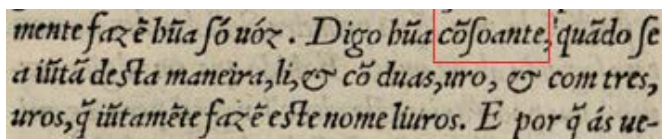 mente fazẽ hũa ſó uóz. Digo hũa cõſoante, quãdo ſe
a iũtã deſta maneira,li,& cõ duas,uro, & com tres,
uros,q̃ iũtamẽte fazẽ eſte nome liuros. E por q̃ ás ue-